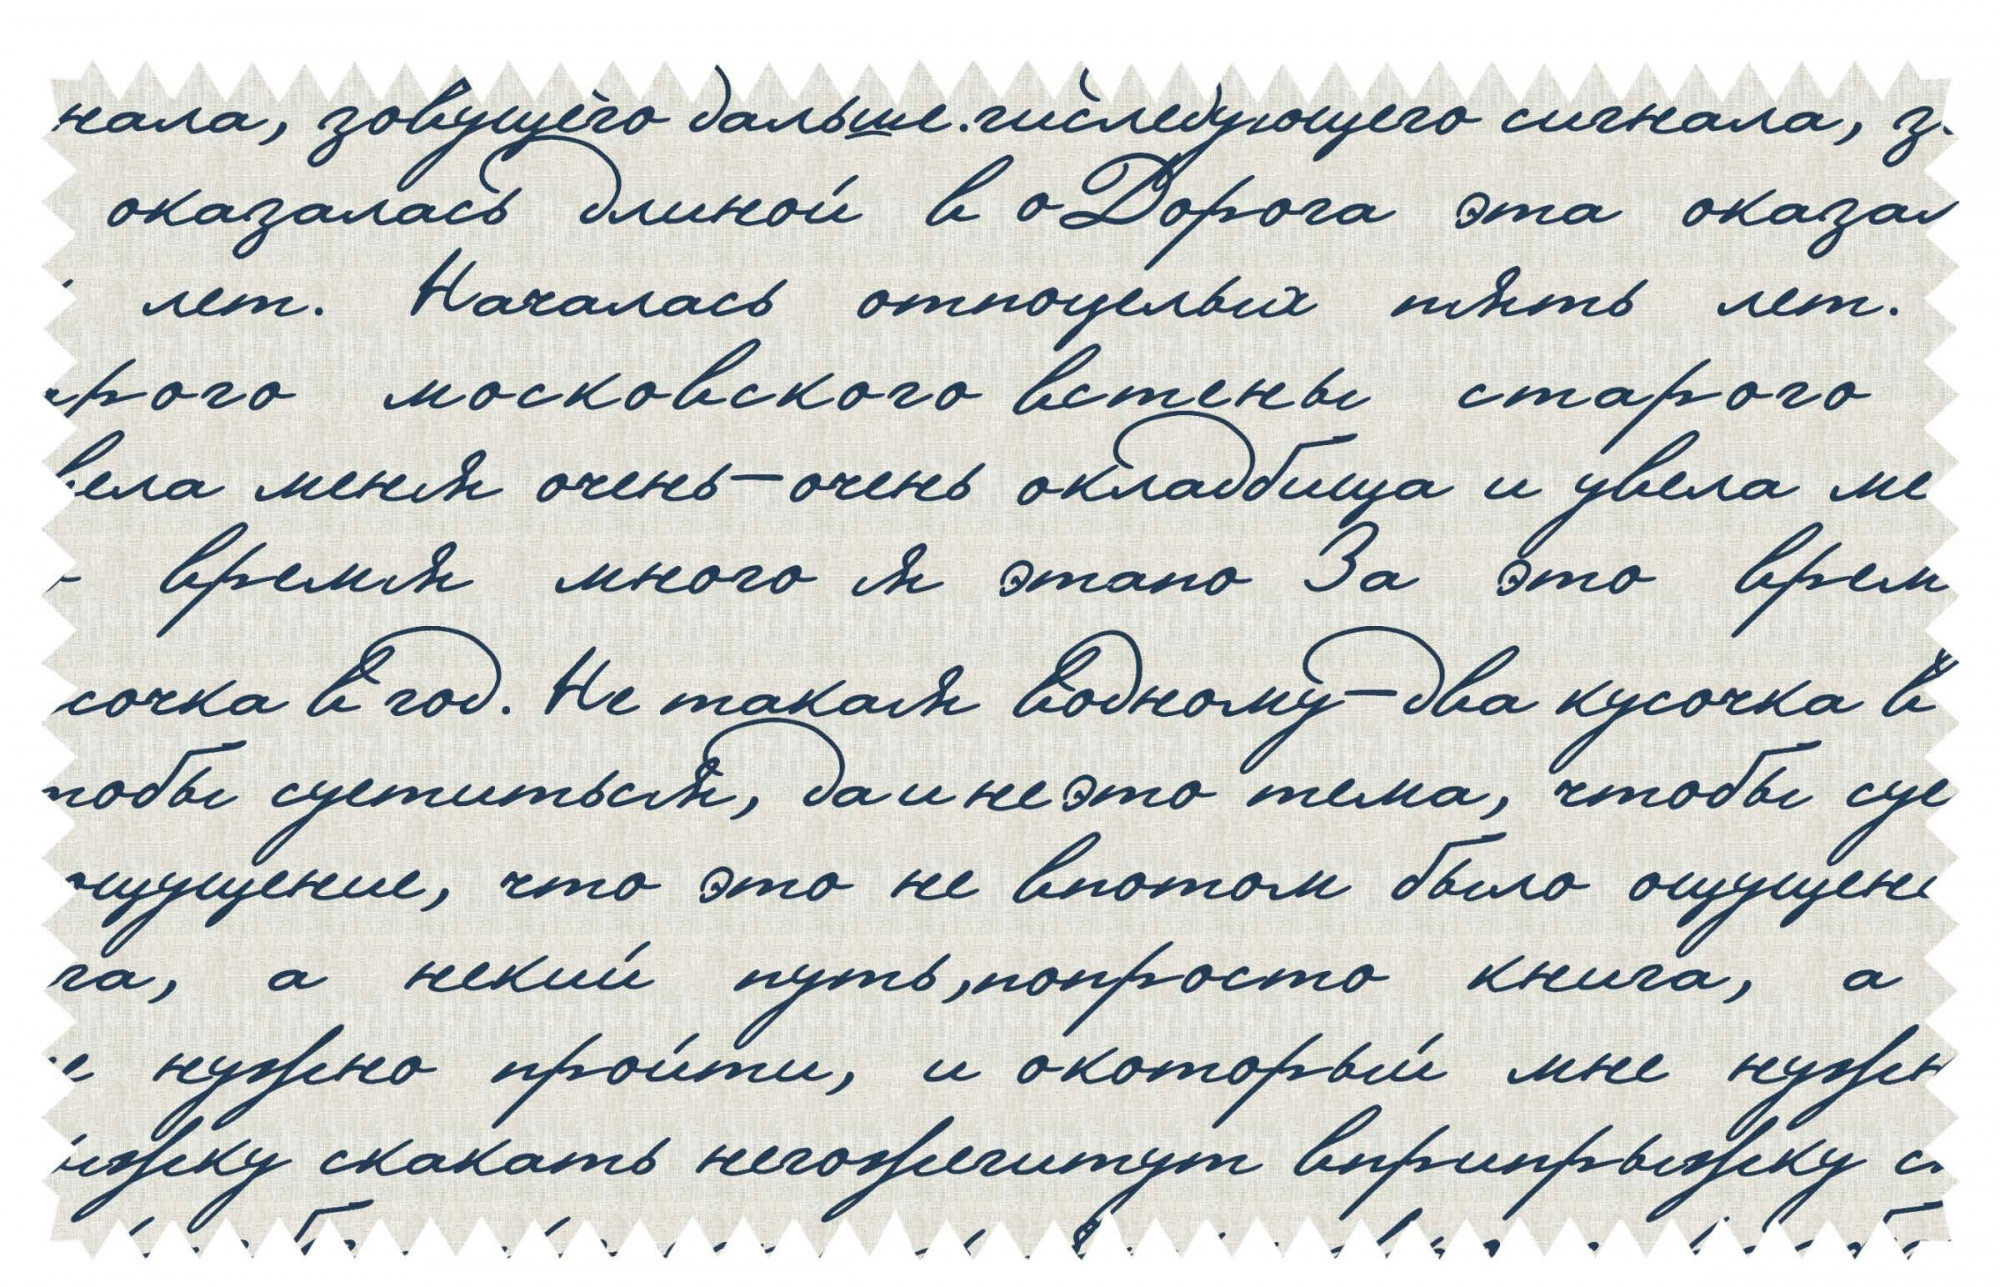 нала, зовущего дальше. числедующего сигнала, з
оказалась длиной в о Дорога эта оказал
лет. Началась отпоцелых пять лет.
рого московского встены старого
вела меня очень-очень окладбища и увела ме
время много я этапо За это врем
сочка в год. Не такая водному-два кусочка в
тобы суетиться, да и не это тема, чтобы суе
ощущение, что это не впотом было ощущени
га, а некий путь, попросто книга, а
е нужно пройти, и окоторый мне нужн
ыжку скакать негожечитут вприпрыжку с